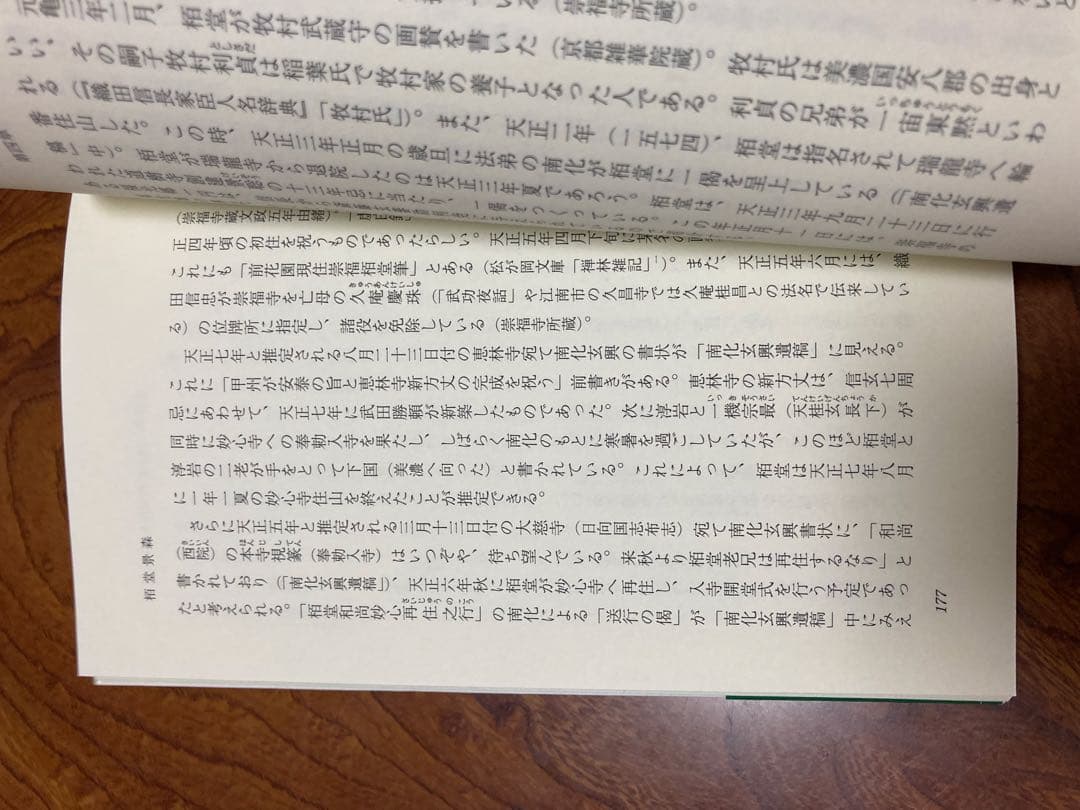 いる（崇福寺所蔵）。
元亀三年二月、栢堂が牧村武蔵守の画賛を書いた（京都雑華院蔵）。牧村氏は美濃国安八郡の出身と
いい、その嗣子牧村利貞は稲葉氏で牧村家の養子となった人である。利貞の兄弟が一宙東黙といわ
れる（『織田信長家臣人名辞典』「牧村氏」）。また、天正二年（一五七四）、栢堂は指名されて瑞龍寺へ輪
番住山した。この時、天正三年正月の歳旦に法弟の南化が栢堂に一偈を呈上している（「南化玄興遺
稿」中）。栢堂が瑞龍寺から退院したのは天正三年夏であろう。栢堂は、天正三年九月二十三日に行
の十三年忌に当たり、一偈をつくっている。
（崇福寺蔵文政五年由緒）
正四年頃の初住を祝うものであったらしい。天正五年四月下旬に
これにも「前花園現住崇福栢堂筆」とある（松が岡文庫「禅林雑記」）。また、天正五年六月には、織
田信忠が崇福寺を亡母の久庵慶珠（『武功夜話』や江南市の久昌寺では久庵桂昌との法名で伝来してい
る）の位牌所に指定し、諸役を免除している（崇福寺所蔵）。
天正七年と推定される八月二十三日付の恵林寺宛て南化玄興の書状が「南化玄興遺稿」に見える。
これに「甲州が安泰の旨と恵林寺新方丈の完成を祝う」前書きがある。恵林寺の新方丈は、信玄七周
忌にあわせて、天正七年に武田勝頼が新築したものであった。次に淳岩と一機宗最（天桂玄長下）が
同時に妙心寺への奉勅入寺を果たし、しばらく南化のもとに寒暑を過ごしていたが、このほど栢堂と
淳岩の二老が手をとって下国（美濃へ向った）と書かれている。これによって、栢堂は天正七年八月
に一年一夏の妙心寺住山を終えたことが推定できる。
さらに天正五年と推定される三月十三日付の大慈寺（日向国志布志）宛て南化玄興書状に、「和尚
（西院）の本寺視篆（奉勅入寺）はいつぞや、待ち望んでいる。来秋より栢堂老兄は再住するなり」と
書かれており（「南化玄興遺稿」）、天正六年秋に栢堂が妙心寺へ再住し、入寺開堂式を行う予定であっ
たと考えられる。「栢堂和尚妙心再住之行」の南化による「送行の偈」が「南化玄興遺稿」中にみえ
栢堂景森
177